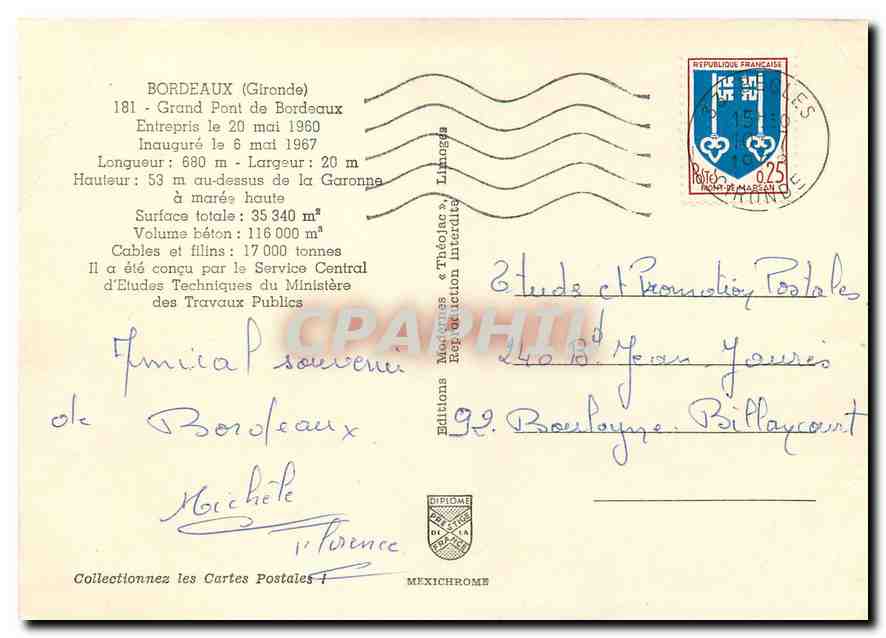 BORDEAUX (Gironde)
181 - Grand Pont de Bordeaux
Entrepris le 20 mai 1960
Inauguré le 6 mai 1967
Longueur : 680 m - Largeur : 20 m
Hauteur : 53 m au-dessus de la Garonne
à marée haute
Surface totale : 35 340 m²
Volume béton : 116 000 m³
Cables et filins : 17 000 tonnes
Il a été conçu par le Service Central
d'Etudes Techniques du Ministère
des Travaux Publics
Amical souvenir
de Bordeaux
Michèle
Florence
Collectionnez les Cartes Postales !
Editions Modernes « Théojac », Limoges
Reproduction interdite
REPUBLIQUE FRANÇAISE
POSTES 0,25
MONT-DE-MARSAN
BEGLES
GIRONDE
Etude et Promotion Postales
240 Bd Jean Jaurès
92. Boulogne-Billancourt
DIPLOME
PRESTIGE
DE LA
FRANCE
MEXICHROME
CPAPHIL